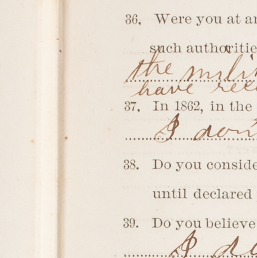 36. Were you at an
such authoritie
the mili
have rec
37. In 1862, in the
I don't
38. Do you conside
until declared
39. Do you believe
I do